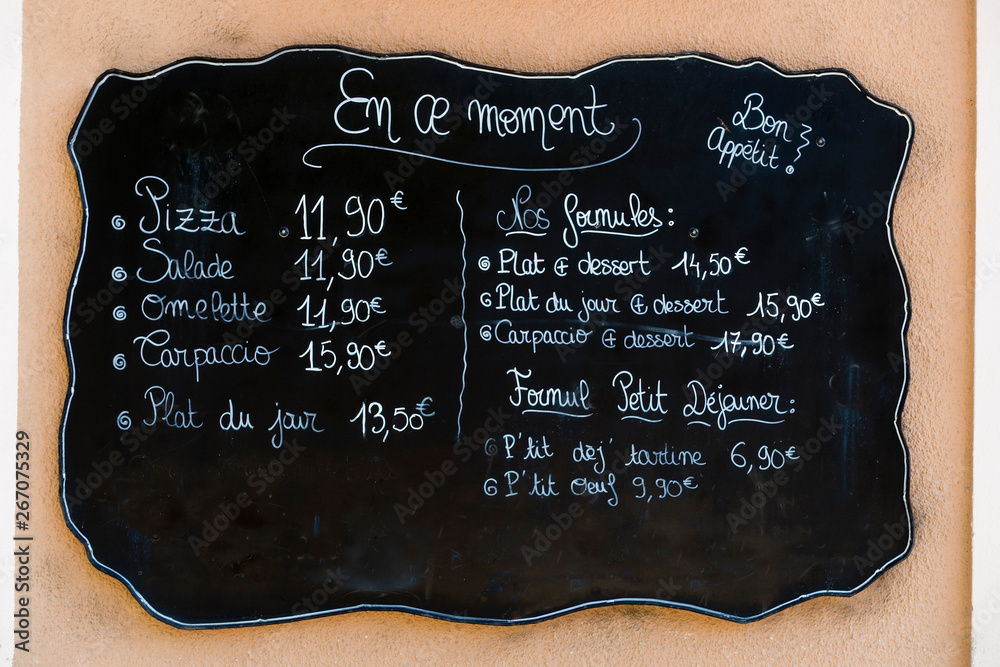 En ce moment
Bon
Appétit !
Pizza 11,90€
Salade 11,90€
Omelette 11,90€
Carpaccio 15,90€
Plat du jour 13,50€
Nos formules :
Plat + dessert 14,50€
Plat du jour + dessert 15,90€
Carpaccio + dessert 17,90€
Formul Petit Déjeuner :
P'tit dèj' tartine 6,90€
P'tit oeuf 9,90€
Adobe Stock | #267075329